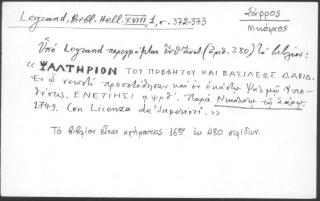 Legrand, Bibl. Hell. XVIII, 1, σ. 372-373
Σάρρος
Νικόλαος
Ὑπὸ Legrand περιγράφεται (ἀριθ. 380) τὸ βιβλίον:
"ΨΑΛΤΗΡΙΟΝ ΤΟΥ ΠΡΟΦΗΤΟΥ ΚΑΙ ΒΑΣΙΛΕΩΣ ΔΑΒΙΔ.
Ἐν ᾧ νεωστὶ προσετέθησαν καὶ ἐν ἑκάστῳ Ψαλμῷ Ὑπο-
θέσεις. ΕΝΕΤΙΗΣΙ αψμθ΄. Παρὰ Νικολάῳ τῷ Σάρῳ.
1749. Con Licenza de' Superiori.»
Τὸ βιβλίον εἶναι σχήματος 16ου ἐκ 480 σελίδων.